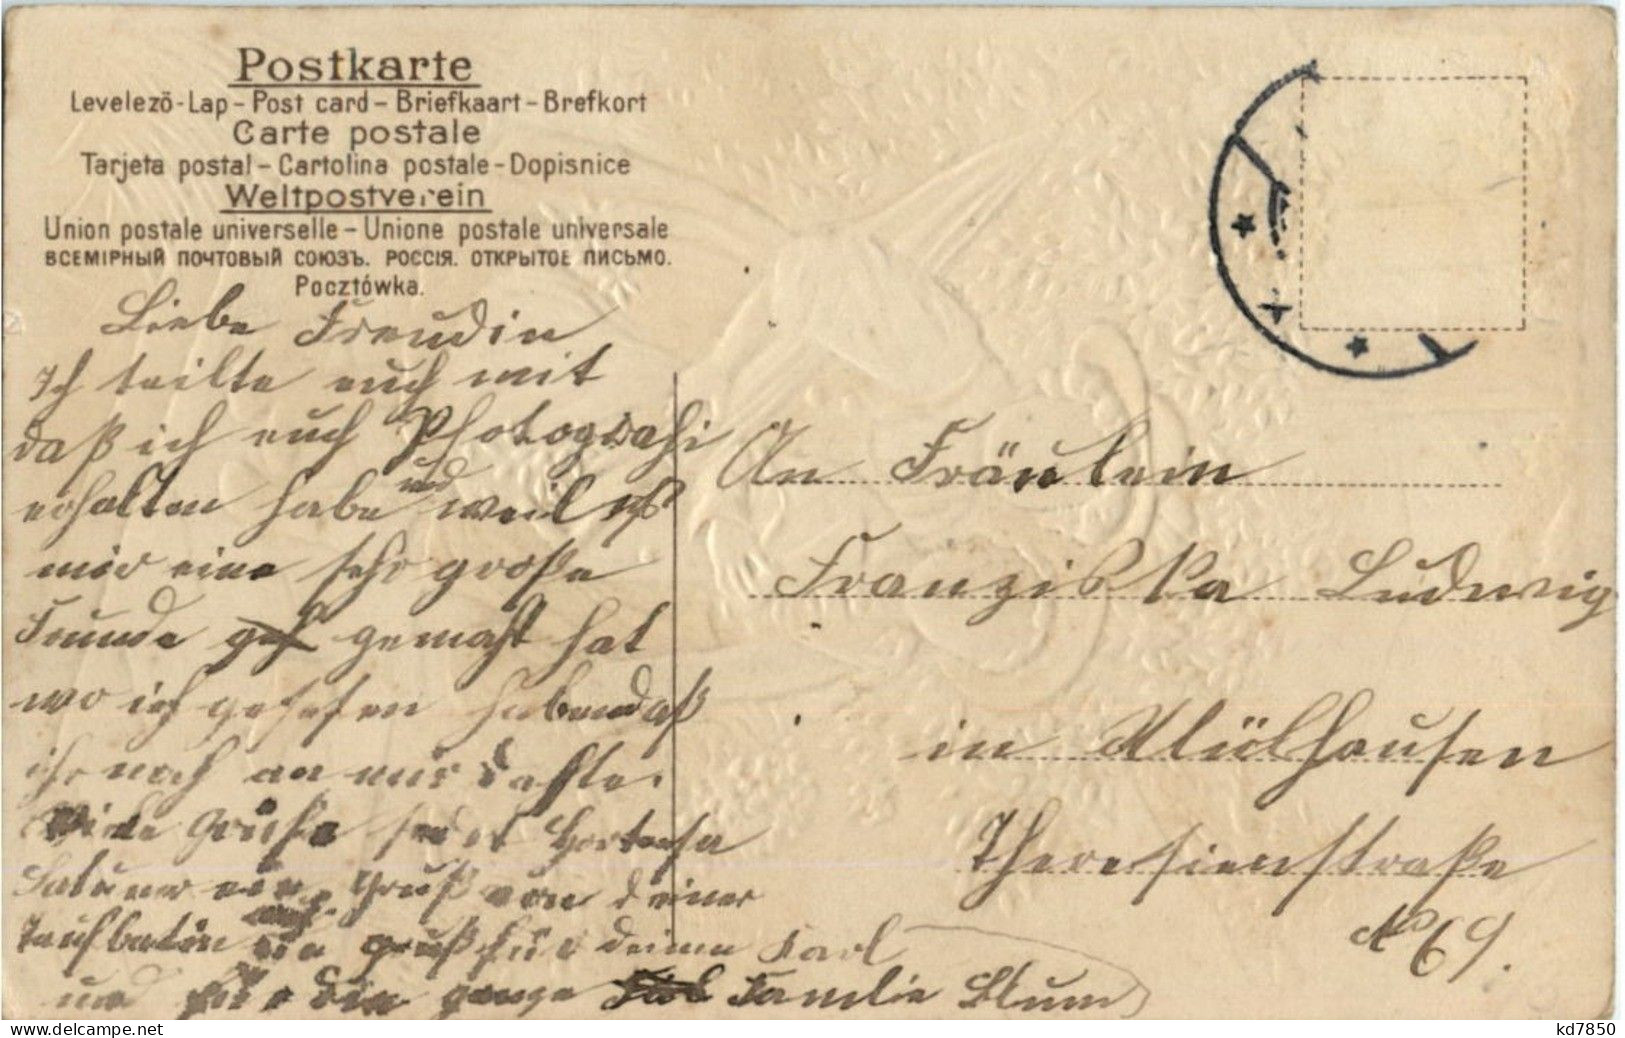 Postkarte
Levelezö-Lap – Post card – Briefkaart – Brefkort
Carte postale
Tarjeta postal – Cartolina postale – Dopisnice
Weltpostverein
Union postale universelle – Unione postale universale
ВСЕМІРНЫЙ ПОЧТОВЫЙ СОЮЗЪ. РОССІЯ. ОТКРЫТОЕ ПИСЬМО.
Pocztówka.
Liebe Freudin
Ich teilte euch mit
daß ich euch Photograhi
erhalten habe und weil es
mir eine sehr große
Freunde gemacht hat
wo ich gesehen haben daß
ihr noch an mir dachte.
Viele Grüße sendet
ein Gruß von deiner
ein gruß für deinen Karl
und für die ganze Familie Blum
An Fräulein
Franziska Ludwig
in Mülhausen
Theresienstraße
No 69.
kd7850